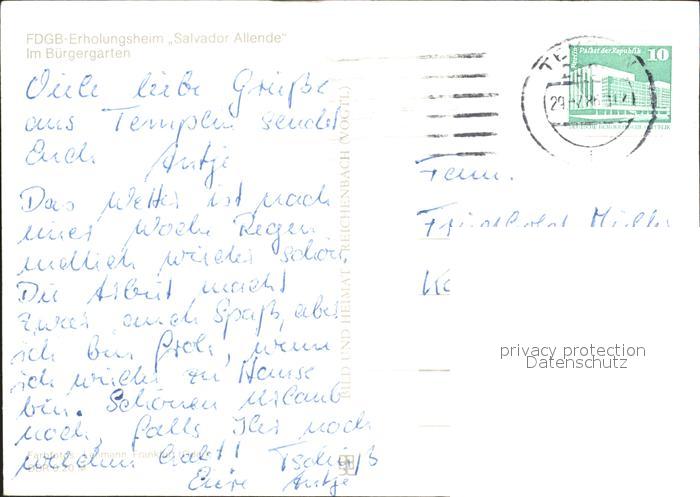 FDGB-Erholungsheim „Salvador Allende"
Im Bürgergarten
Viele liebe Grüße
aus Templin sendet
Euch Antje
Das Wetter ist nach
einer Woche Regen
endlich wieder schön.
Die Arbeit macht
zwar auch Spaß, aber
ich bin froh, wenn
ich wieder zu Hause
bin. Schönen Urlaub
noch, falls Ihr noch
welchen habt! Tschüß
Eure Antje
BILD UND HEIMAT REICHENBACH (VOGTL)
Palast der Republik
10
DEUTSCHE DEMOKRATISCHE REPUBLIK
Fam.
privacy protection
Datenschutz